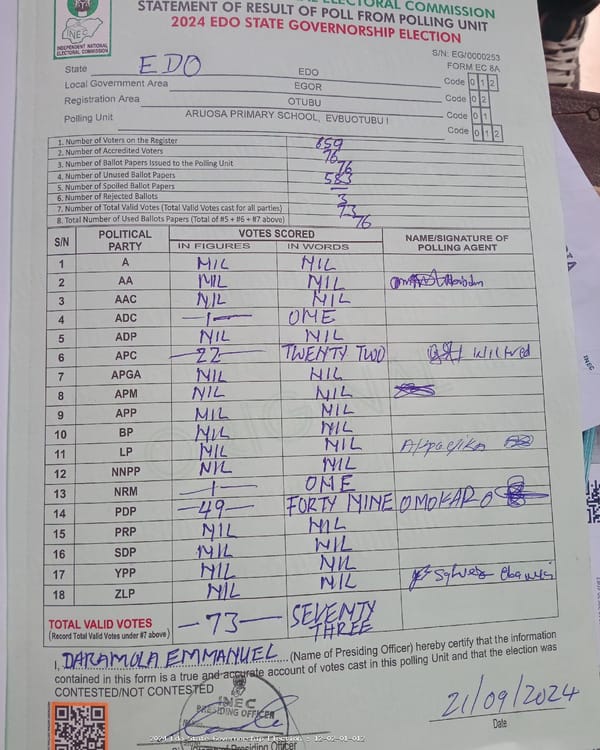 INEC
INDEPENDENT NATIONAL
ELECTORAL COMMISSION
ELECTORAL COMMISSION
STATEMENT OF RESULT OF POLL FROM POLLING UNIT
2024 EDO STATE GOVERNORSHIP ELECTION
S/N: EG/0000253
FORM EC 8A
State EDO EDO
Local Government Area EGOR Code 0 1 2
Registration Area OTUBU Code 0 2
Polling Unit ARUOSA PRIMARY SCHOOL, EVBUOTUBU I Code 0 1
Code 0 1 2
1. Number of Voters on the Register 859
2. Number of Accredited Voters 76
3. Number of Ballot Papers Issued to the Polling Unit
4. Number of Unused Ballot Papers 583
5. Number of Spoiled Ballot Papers —
6. Number of Rejected Ballots 3
7. Number of Total Valid Votes (Total Valid Votes cast for all parties) 73
8. Total Number of Used Ballots Papers (Total of #5 + #6 + #7 above) 76
S/N POLITICAL PARTY VOTES SCORED NAME/SIGNATURE OF POLLING AGENT
IN FIGURES IN WORDS
1 A NIL NIL
2 AA NIL NIL
3 AAC NIL NIL
4 ADC —1— ONE
5 ADP NIL NIL
6 APC —22— TWENTY TWO Wilfred
7 APGA NIL NIL
8 APM NIL NIL
9 APP NIL NIL
10 BP NIL NIL
11 LP NIL NIL
12 NNPP NIL NIL
13 NRM —1— ONE
14 PDP —49— FORTY NINE OMOKARO
15 PRP NIL NIL
16 SDP NIL NIL
17 YPP NIL NIL
18 ZLP NIL NIL
TOTAL VALID VOTES —73— SEVENTY THREE
(Record Total Valid Votes under #7 above)
I, DARAMOLA EMMANUEL (Name of Presiding Officer) hereby certify that the information
contained in this form is a true and accurate account of votes cast in this polling Unit and that the election was
CONTESTED/NOT CONTESTED
INEC
PRESIDING OFFICER
21/09/2024
Date
2024 Edo State Governorship Election - 12-02-01-012
Presiding Officer